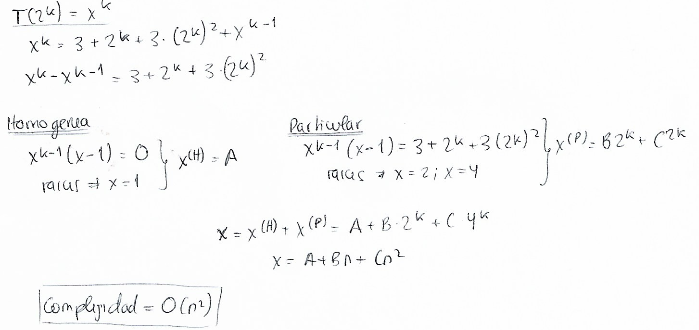 T(2^k) = x^k
x^k = 3 + 2^k + 3 · (2^k)^2 + x^{k-1}
x^k - x^{k-1} = 3 + 2^k + 3 · (2^k)^2
Homogenea
x^{k-1}(x-1) = 0 } x^(H) = A
raices ⇒ x = 1
Particular
x^{k-1}(x-1) = 3 + 2^k + 3(2^k)^2 } x^(P) = B2^k + C^{2k}
raices ⇒ x = 2; x = 4
x = x^(H) + x^(P) = A + B·2^k + C 4^k
x = A + Bn + Cn^2
Complejidad = O(n^2)